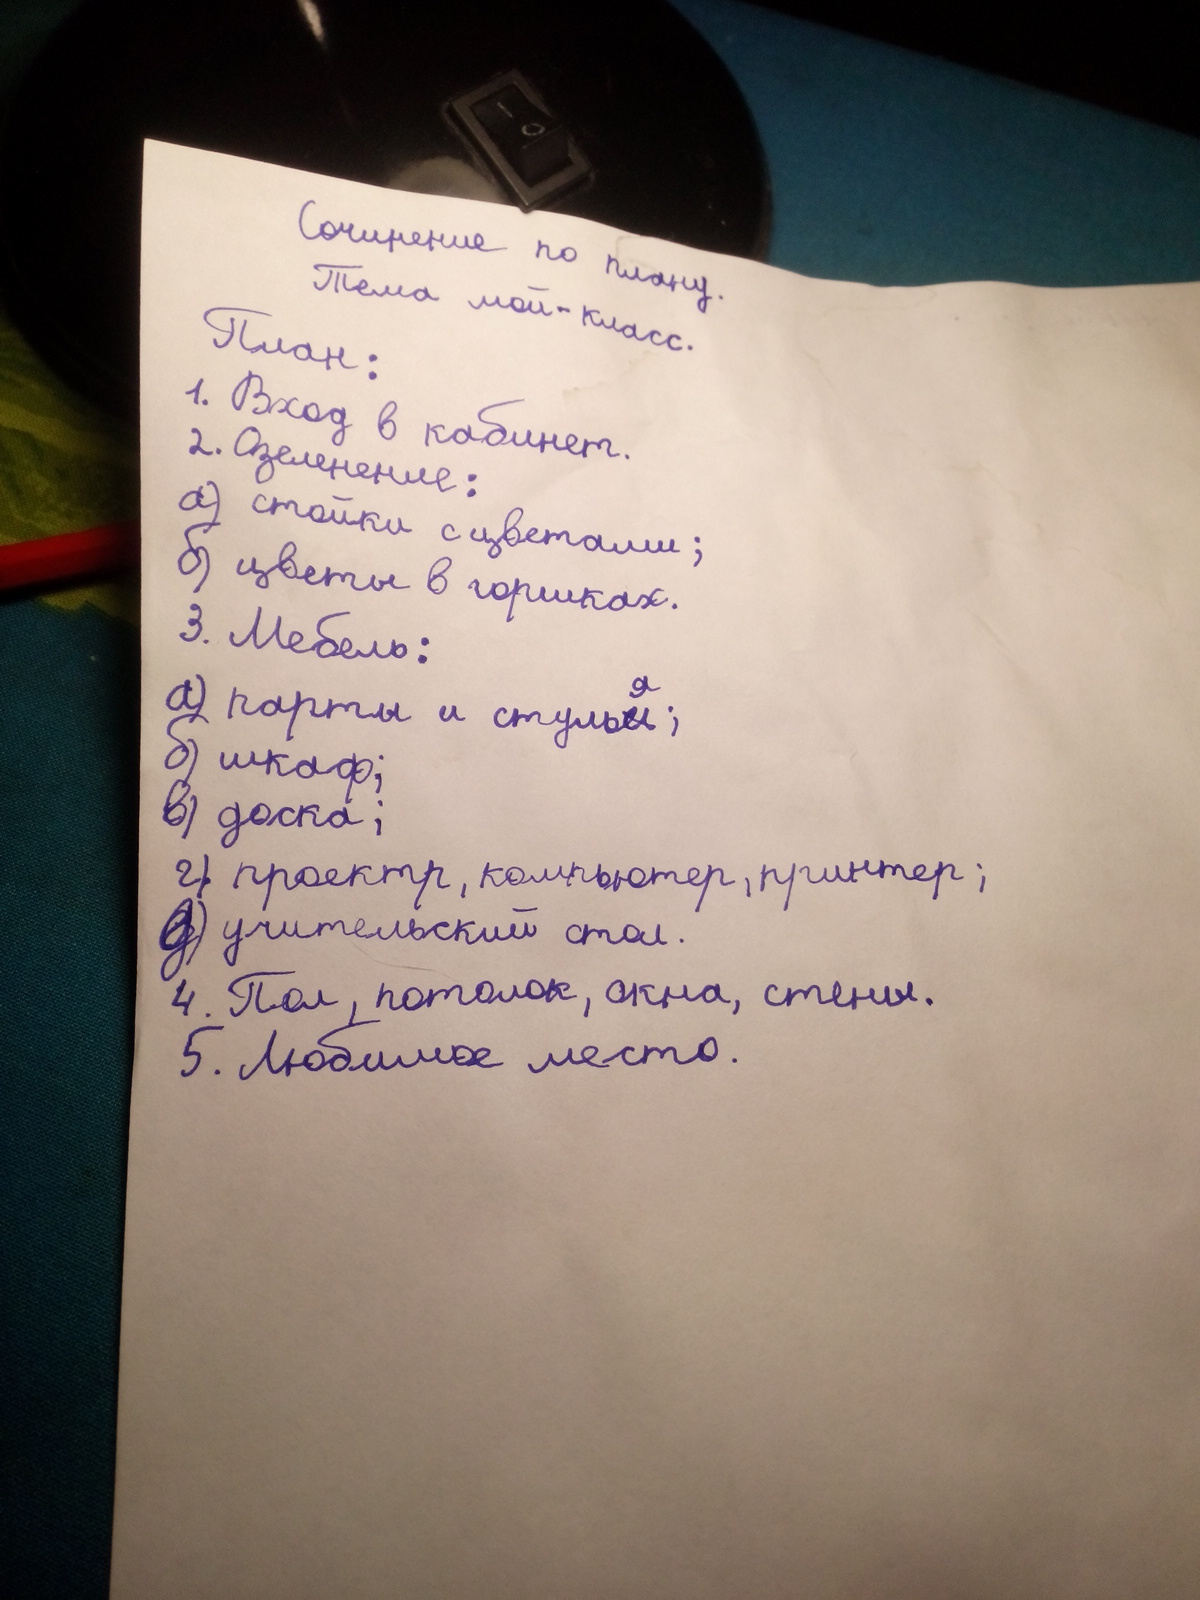 Сочинение по плану.
Тема мой-класс.
План:
1. Вход в кабинет.
2. Озеленение:
а) стойки с цветами;
б) цветы в горшках.
3. Мебель:
я
а) парты и стулья;
б) шкаф;
в) доска;
г) проектр, компьютер, принтер;
д) учительский стол.
4. Пол, потолок, окна, стены.
5. Любимое место.